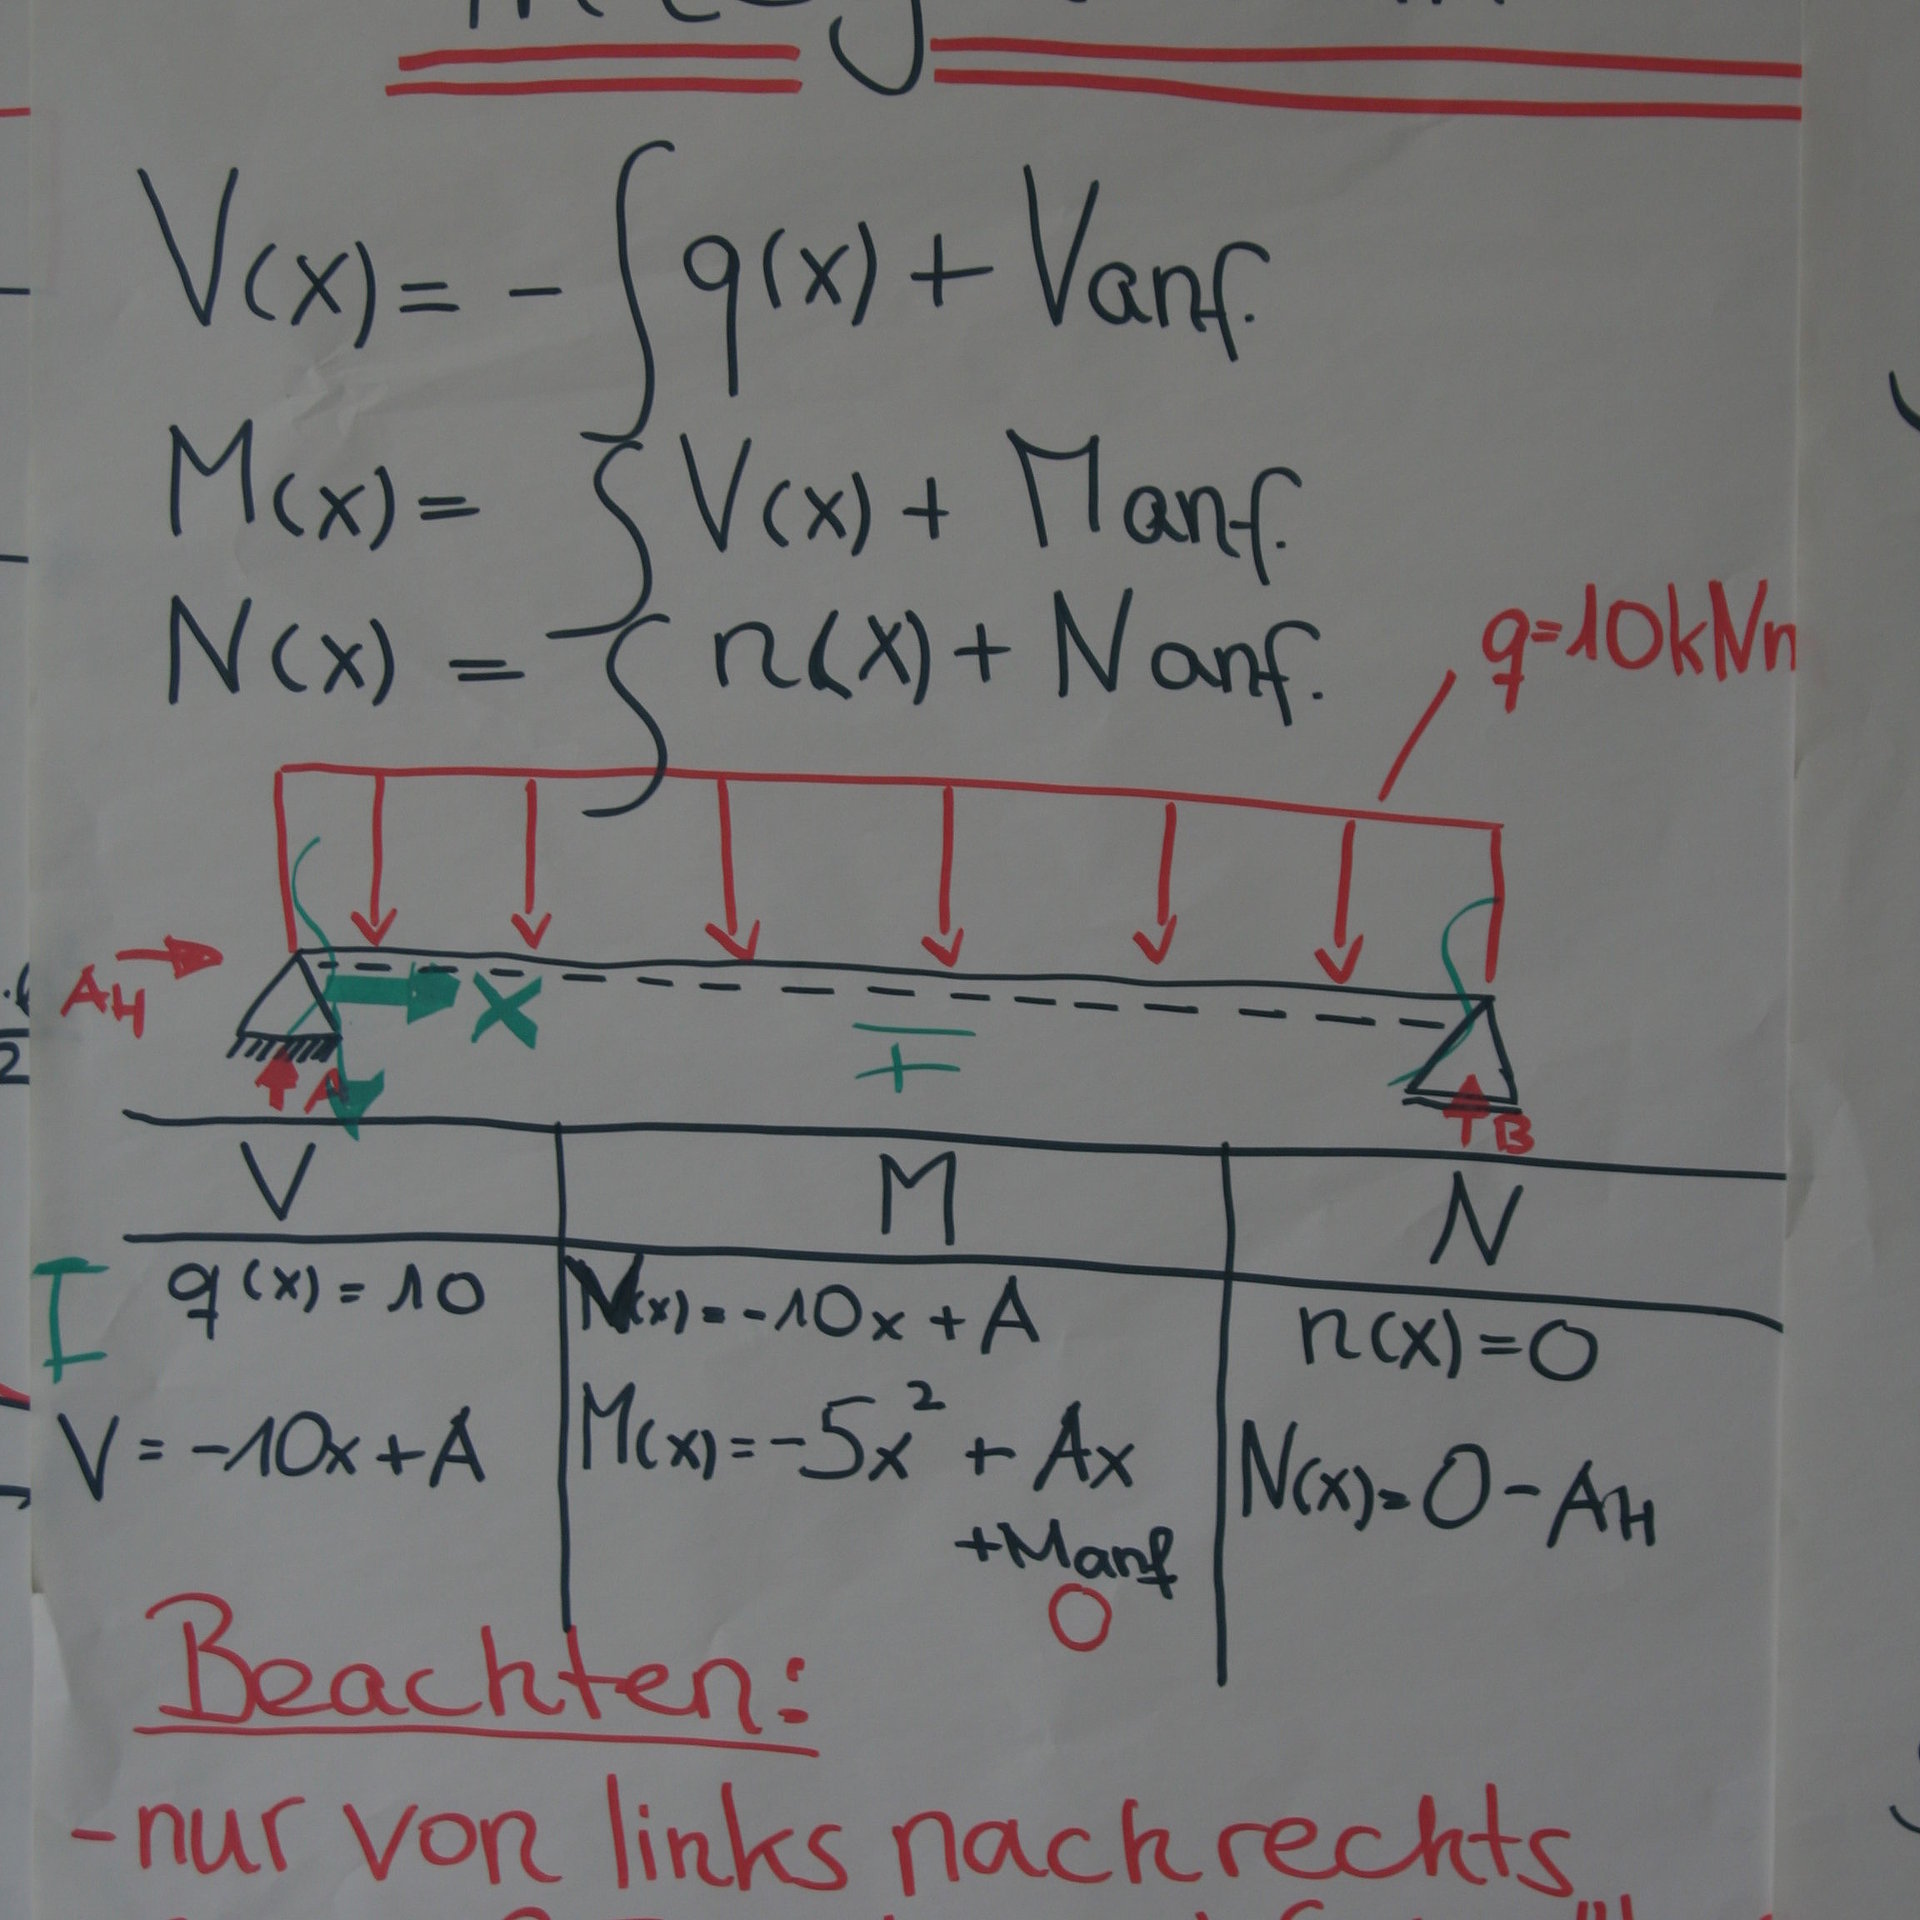 V(x) = - ∫ q(x) + Vanf.
M(x) = ∫ V(x) + Manf.
N(x) = ∫ n(x) + Nanf.
q=10kN
AH
X
A
+
B
V M N
I
q(x) = 10
V = -10x + A
V(x) = -10x + A
M(x) = -5x² + Ax
+Manf
0
n(x) = 0
N(x) = 0 - AH
Beachten:
- nur von links nach rechts